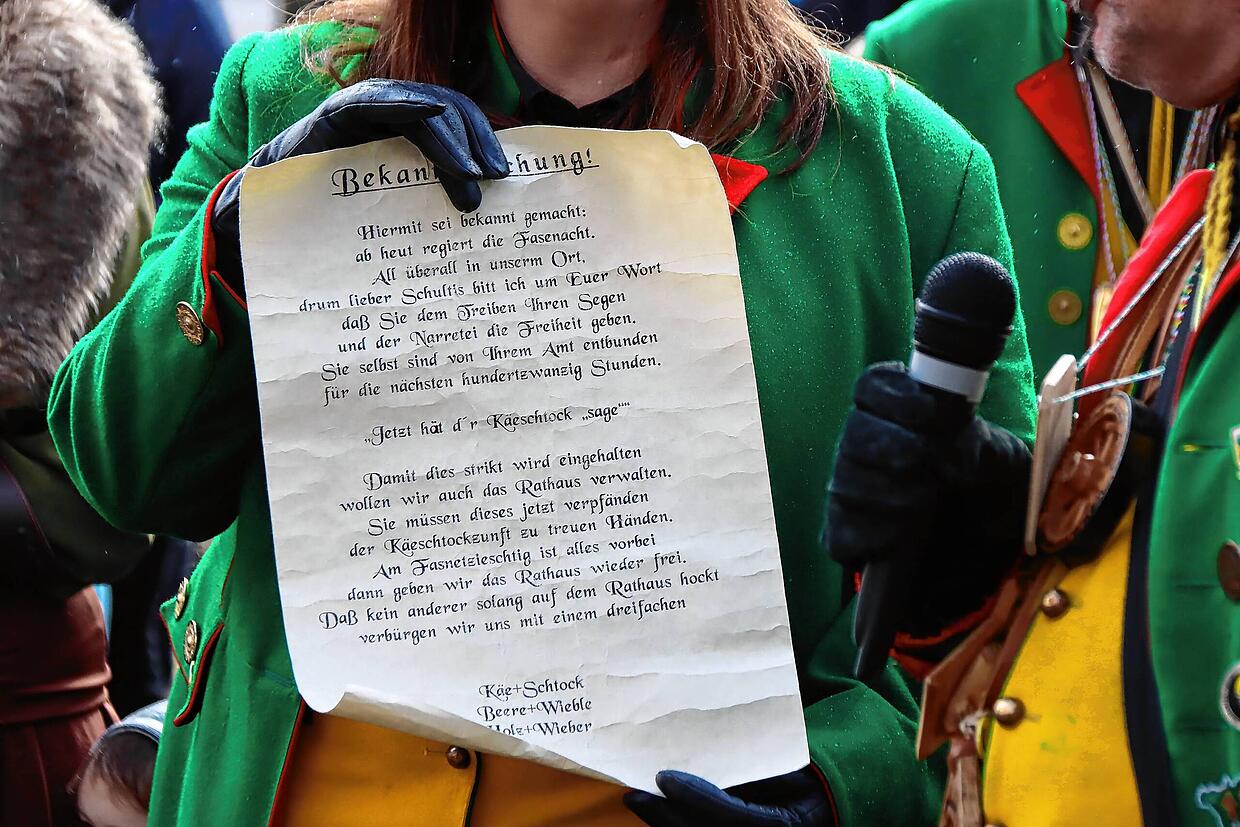 Hiermit sei bekannt gemacht:
ab heut regiert die Fasenacht.
All überall in unserm Ort,
drum lieber Schultis bitt ich um Euer Wort
daß Sie dem Treiben Ihren Segen
und der Narretei die Freiheit geben.
Sie selbst sind von Ihrem Amt entbunden
für die nächsten hundertzwanzig Stunden.
„Jetzt hät d´r Käeschtock „sage““
Damit dies strikt wird eingehalten
wollen wir auch das Rathaus verwalten.
Sie müssen dieses jetzt verpfänden
der Käeschtockzunft zu treuen Händen.
Am Fasnetzieschtig ist alles vorbei
dann geben wir das Rathaus wieder frei.
Daß kein anderer solang auf dem Rathaus hockt
verbürgen wir uns mit einem dreifachen
Käe+Schtock
Beere+Wieble
Holz+Wieber